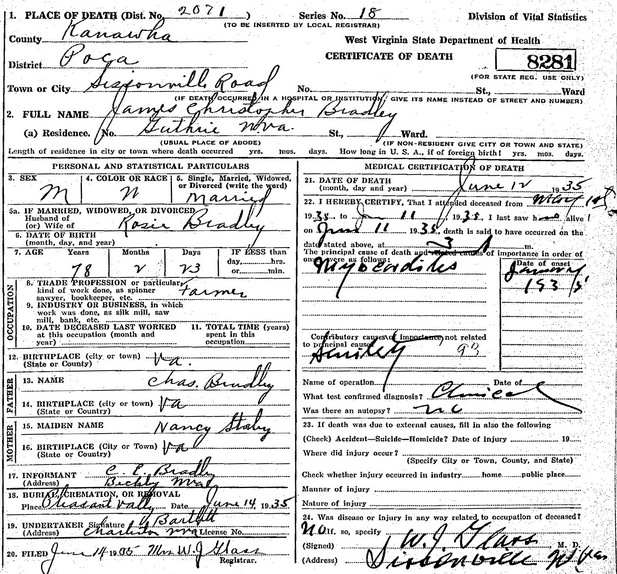 1. PLACE OF DEATH (Dist. No. 2071) Series No. 18 Division of Vital Statistics
(TO BE INSERTED BY LOCAL REGISTRAR)
County Kanawha West Virginia State Department of Health
District Poca CERTIFICATE OF DEATH 8281
(FOR STATE REG. USE ONLY)
Town or City Sissonville Road No. St., Ward
(IF DEATH OCCURRED IN A HOSPITAL OR INSTITUTION, GIVE ITS NAME INSTEAD OF STREET AND NUMBER)
2. FULL NAME James Christopher Bradley
(a) Residence. No. Guthrie W Va. St., Ward.
(USUAL PLACE OF ABODE) (IF NON-RESIDENT GIVE CITY OR TOWN AND STATE)
Length of residence in city or town where death occurred yrs. mos. days. How long in U. S., if of foreign birth? yrs. mos. days.
PERSONAL AND STATISTICAL PARTICULARS
3. SEX 4. COLOR OR RACE 5. Single, Married, Widowed, or Divorced (write the word)
M W Married
5a. IF MARRIED, WIDOWED, OR DIVORCED
Husband of
(or) Wife of Rosie Bradley
6. DATE OF BIRTH
(month, day, and year)
7. AGE Years Months Days IF LESS than
day, hrs.
or min.
78 2 23
OCCUPATION
8. TRADE PROFESSION or particular
kind of work done, as spinner
sawyer, bookkeeper, etc. Farmer
9. INDUSTRY OR BUSINESS, in which
work was done, as silk mill, saw
mill, bank, etc.
10. DATE DECEASED LAST WORKED
at this occupation (month and
year)
11. TOTAL TIME (years)
spent in this
occupation
12. BIRTHPLACE (city or town) Va.
(State or County)
FATHER
13. NAME Chas. Bradley
14. BIRTHPLACE (city or town) Va
(State or Country)
MOTHER
15. MAIDEN NAME Nancy
16. BIRTHPLACE (City or Town) Va
(State or County)
17. INFORMANT C. E. Bradley
(Address) W Va
18. BURIAL, CREMATION, OR REMOVAL
Place Pleasant Valley Date June 14, 1935
19. UNDERTAKER Signature Bartlett
(Address) Charleston W Va License No.
20. FILED June 14 1935 Mrs W. J Glass
Registrar.
MEDICAL CERTIFICATION OF DEATH
21. DATE OF DEATH
(month, day, and year) June 12 1935
22. I HEREBY CERTIFY, That I attended deceased from May
1935, to Jun 11, 1935. I last saw h alive
on June 11 1935, death is said to have occurred on the
date stated above, at 3 m.
The principal cause of death and related causes of importance in order of
onset were as follows: Date of onset
Myocarditis January
1935
Contributory causes of importance not related
to principal cause:
Senility 93
Name of operation Date of
What test confirmed diagnosis? Clinical
Was there an autopsy? no
23. If death was due to external causes, fill in also the following
(Check) Accident—Suicide—Homicide? Date of injury 19
Where did injury occur?
(Specify City or Town, County, and State)
Check whether injury occurred in industry home public place.
Manner of injury
Nature of injury
24. Was disease or injury in any way related to occupation of deceased?
No If so, specify
(Signed) W. J. Glass M. D.
(Address) Sissonville W Va